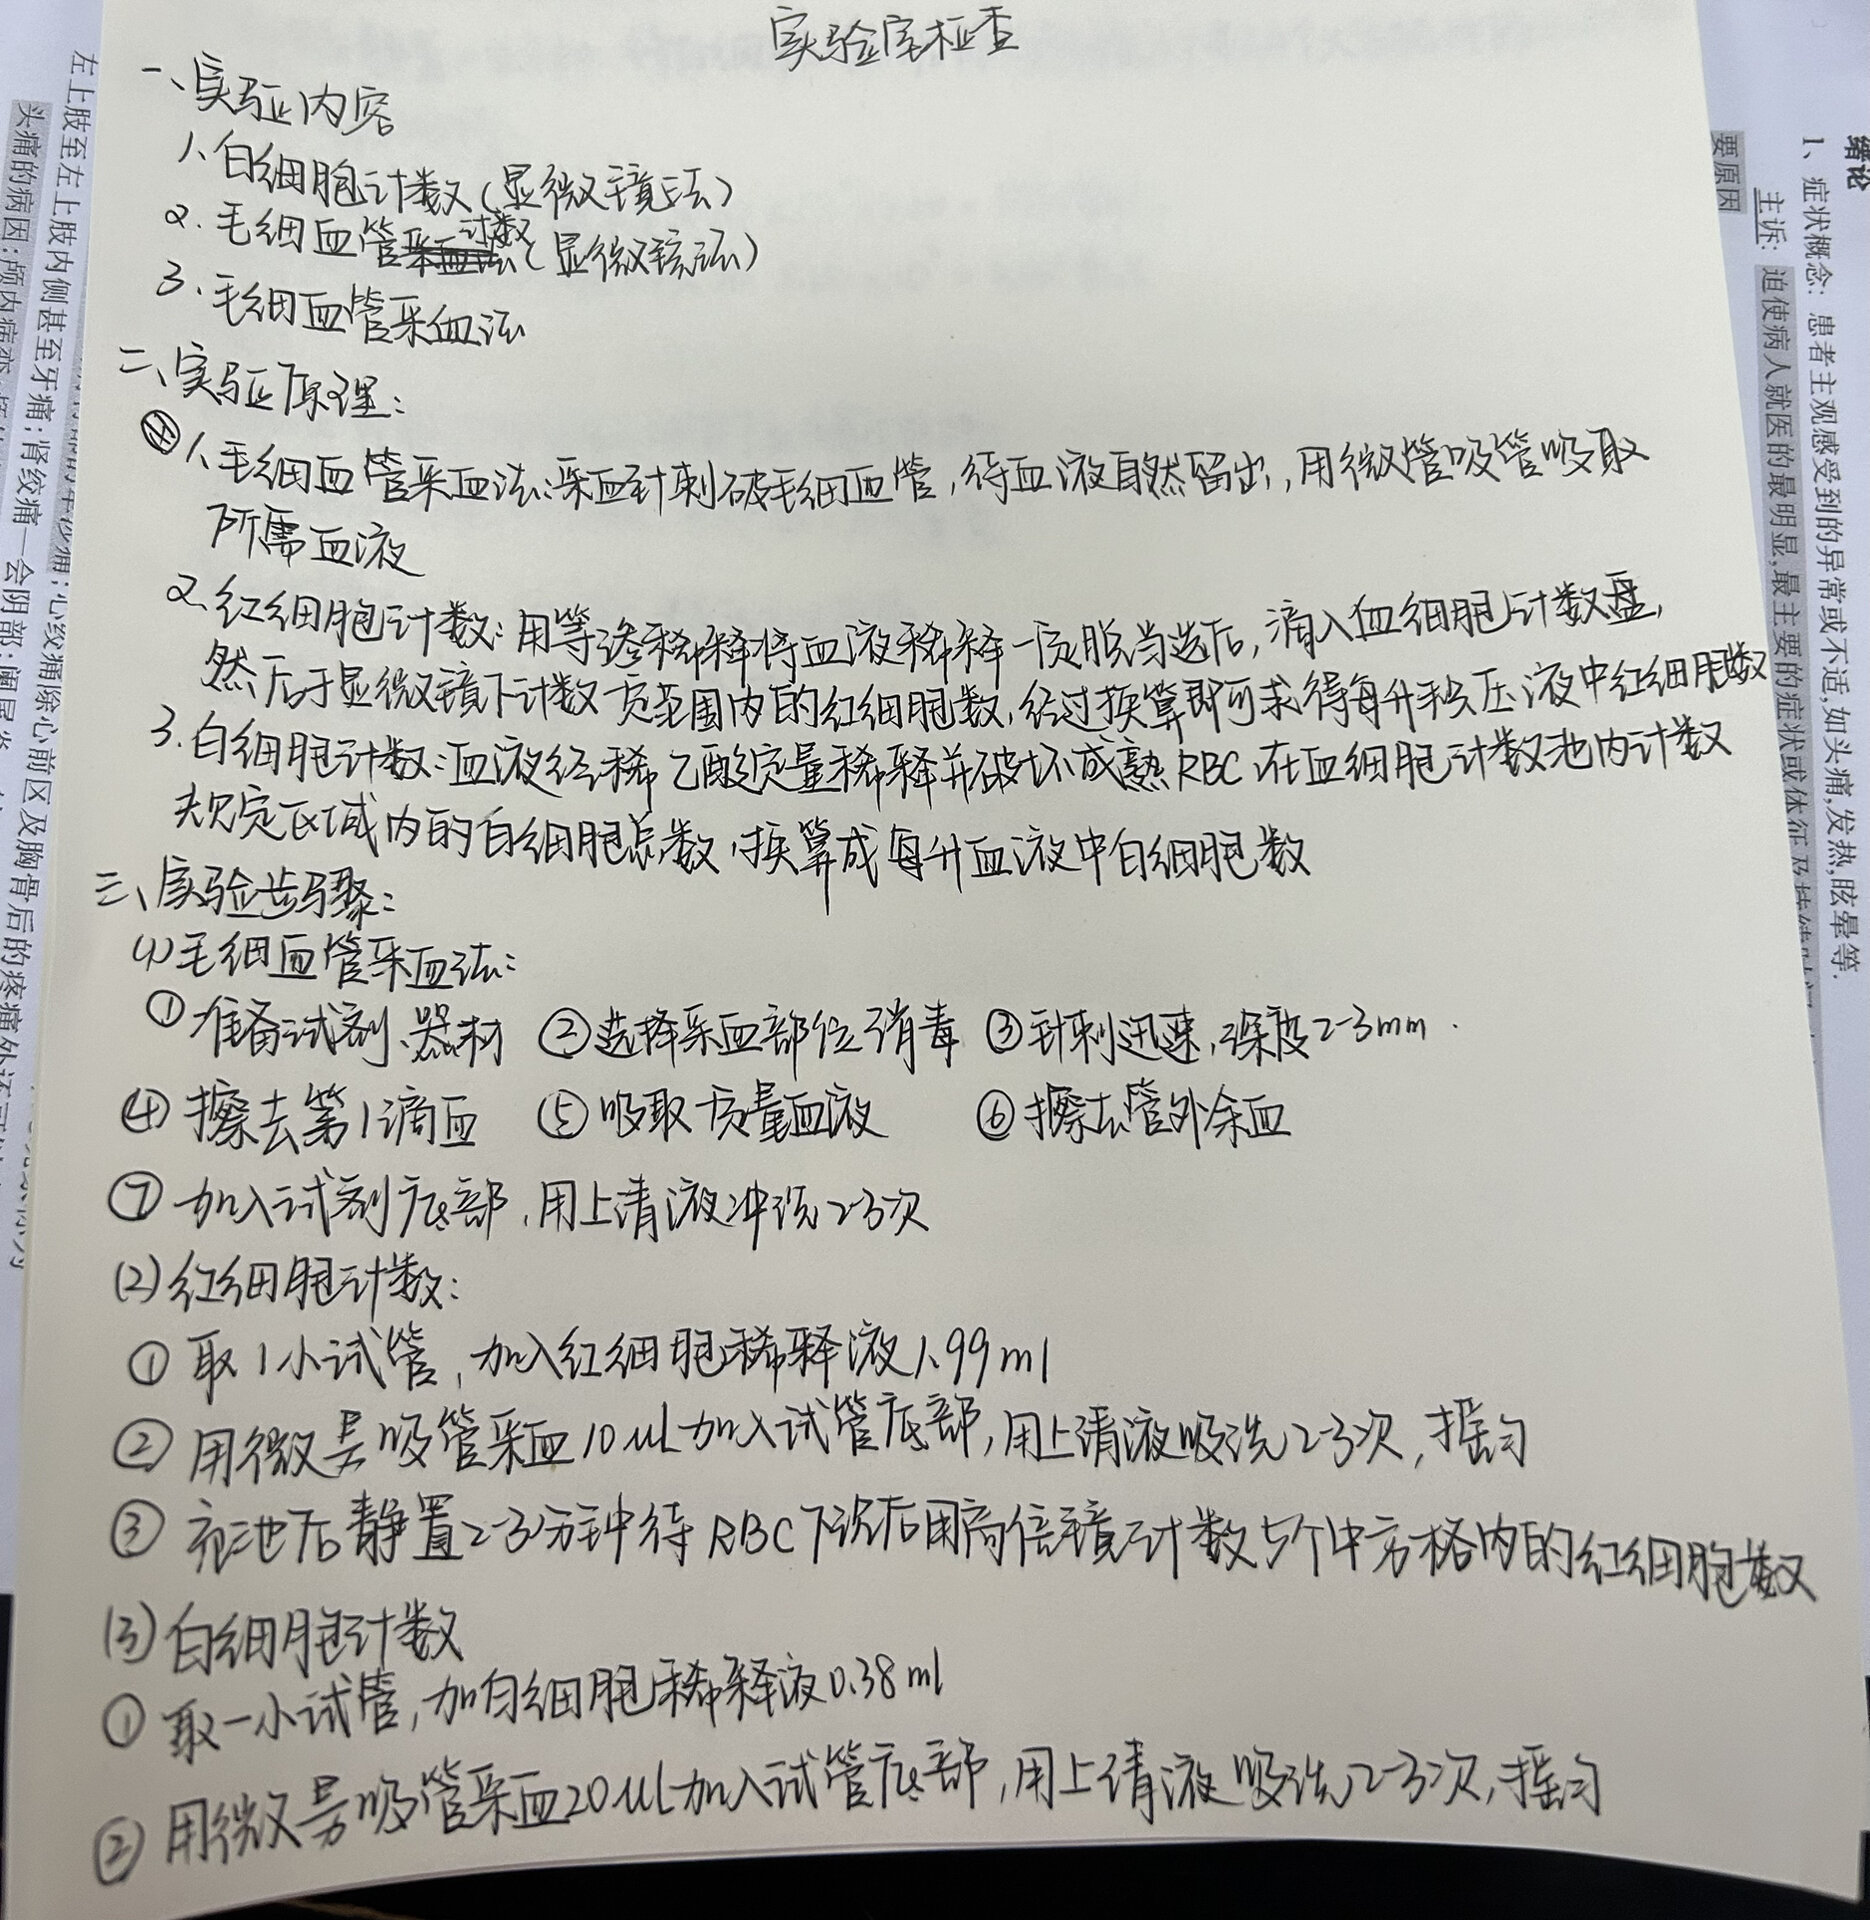 实验室检查
一、实验内容
1、白细胞计数(显微镜法)
2、毛细血管计数(显微镜法)
3、毛细血管采血法
二、实验原理:
1、毛细血管采血法:采血针刺破毛细血管,待血液自然留出,用微管吸管吸取
所需血液
2、红细胞计数:用等渗稀释将血液稀释一定倍当选后,滴入血细胞计数盘,
然后于显微镜下计数一定范围内的红细胞数,经过换算即可求得每升血液中红细胞数
3、白细胞计数:血液经稀乙酸定量稀释并破坏成熟RBC,在血细胞计数池内计数
规定区域内的白细胞总数,换算成每升血液中白细胞数
三、实验步骤:
(1)毛细血管采血法:
①准备试剂、器材 ②选择采血部位消毒 ③针刺迅速,深度2-3mm.
④擦去第1滴血 ⑤吸取定量血液 ⑥擦去管外余血
⑦加入试剂底部,用上清液冲洗2-3次
(2)红细胞计数:
①取1小试管,加入红细胞稀释液1.99ml
②用微量吸管采血10uL加入试管底部,用上清液吸洗2-3次,摇匀
③充池后静置2-3分钟待RBC下沉后用高倍镜计数5个中方格内的红细胞数
(3)白细胞计数
①取一小试管,加白细胞稀释液0.38ml
②用微量吸管采血20uL加入试管底部,用上清液吸洗2-3次,摇匀
绪论
1、症状概念:患者主观感受到的异常或不适,如头痛,发热,眩晕等.
主诉:迫使病人就医的最明显,最主要的症状或体征及
要原因
左上肢至左上肢内侧甚至牙痛;肾绞痛—会阴部;阑尾炎
头痛的病因:颅内病变
心绞痛除心前区及胸骨后的疼痛外还可